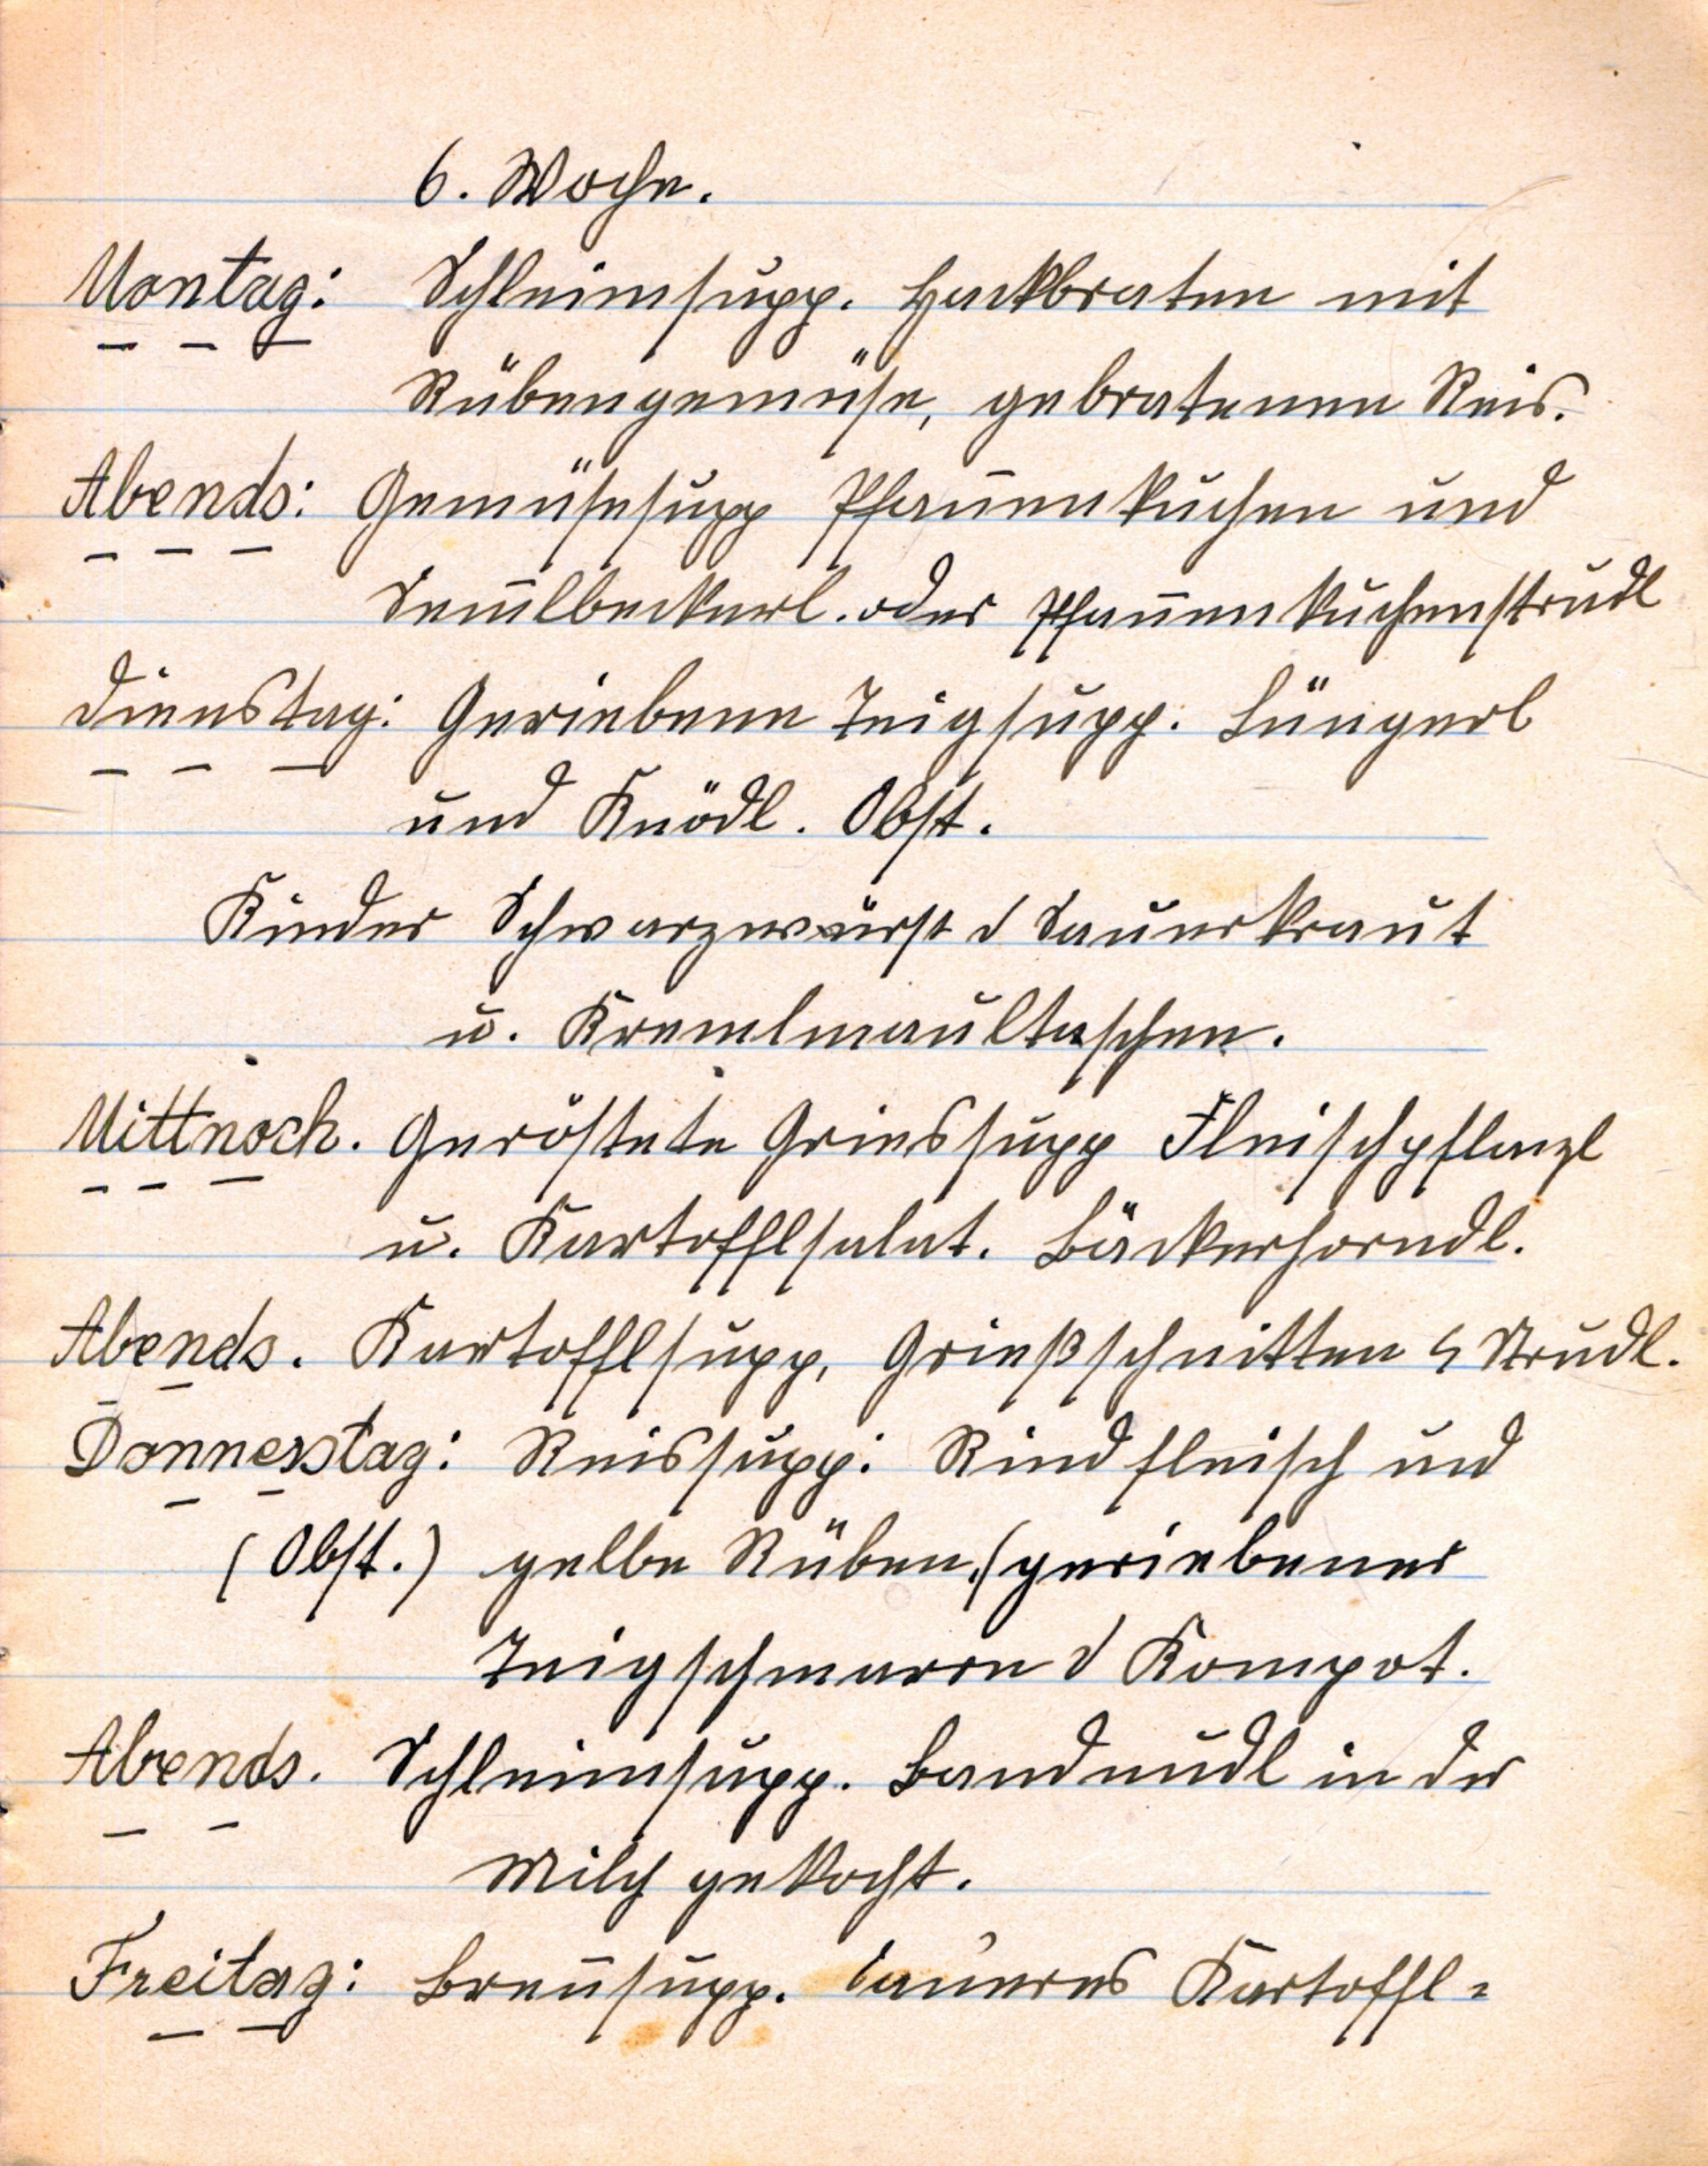 6. Woche.
Montag: Schleimsupp. Hackbraten mit
Rübengemüse, gebratenen Reis.
Abends: Gemüsesupp Pfan̄enkuchen und
Sem̄lbeckerl. oder Pfan̄enkuchenstrudl
Dienstag: Geriebene Teigsupp. Lüngerl
und Knödl. Obst.
Kinder Schwarzwürst d Sauerkraut
u. Kremlmaultaschen.
Mittwoch. Geröstete Griessupp Fleischpflanzl
u. Kartofflsalat. Bäckerhorndl.
Abends. Kartofflsupp, Grießschnitten Strudl.
Donnerstag: Reissupp: Rindfleisch und
(Obst.) gelbe Rüben. (geriebener
Teigschmarrn d Kompot.
Abends. Schleimsupp. Bandnudl in der
Milch gekocht.
Freitag: Bren̄supp. Saueres Kartoffl=